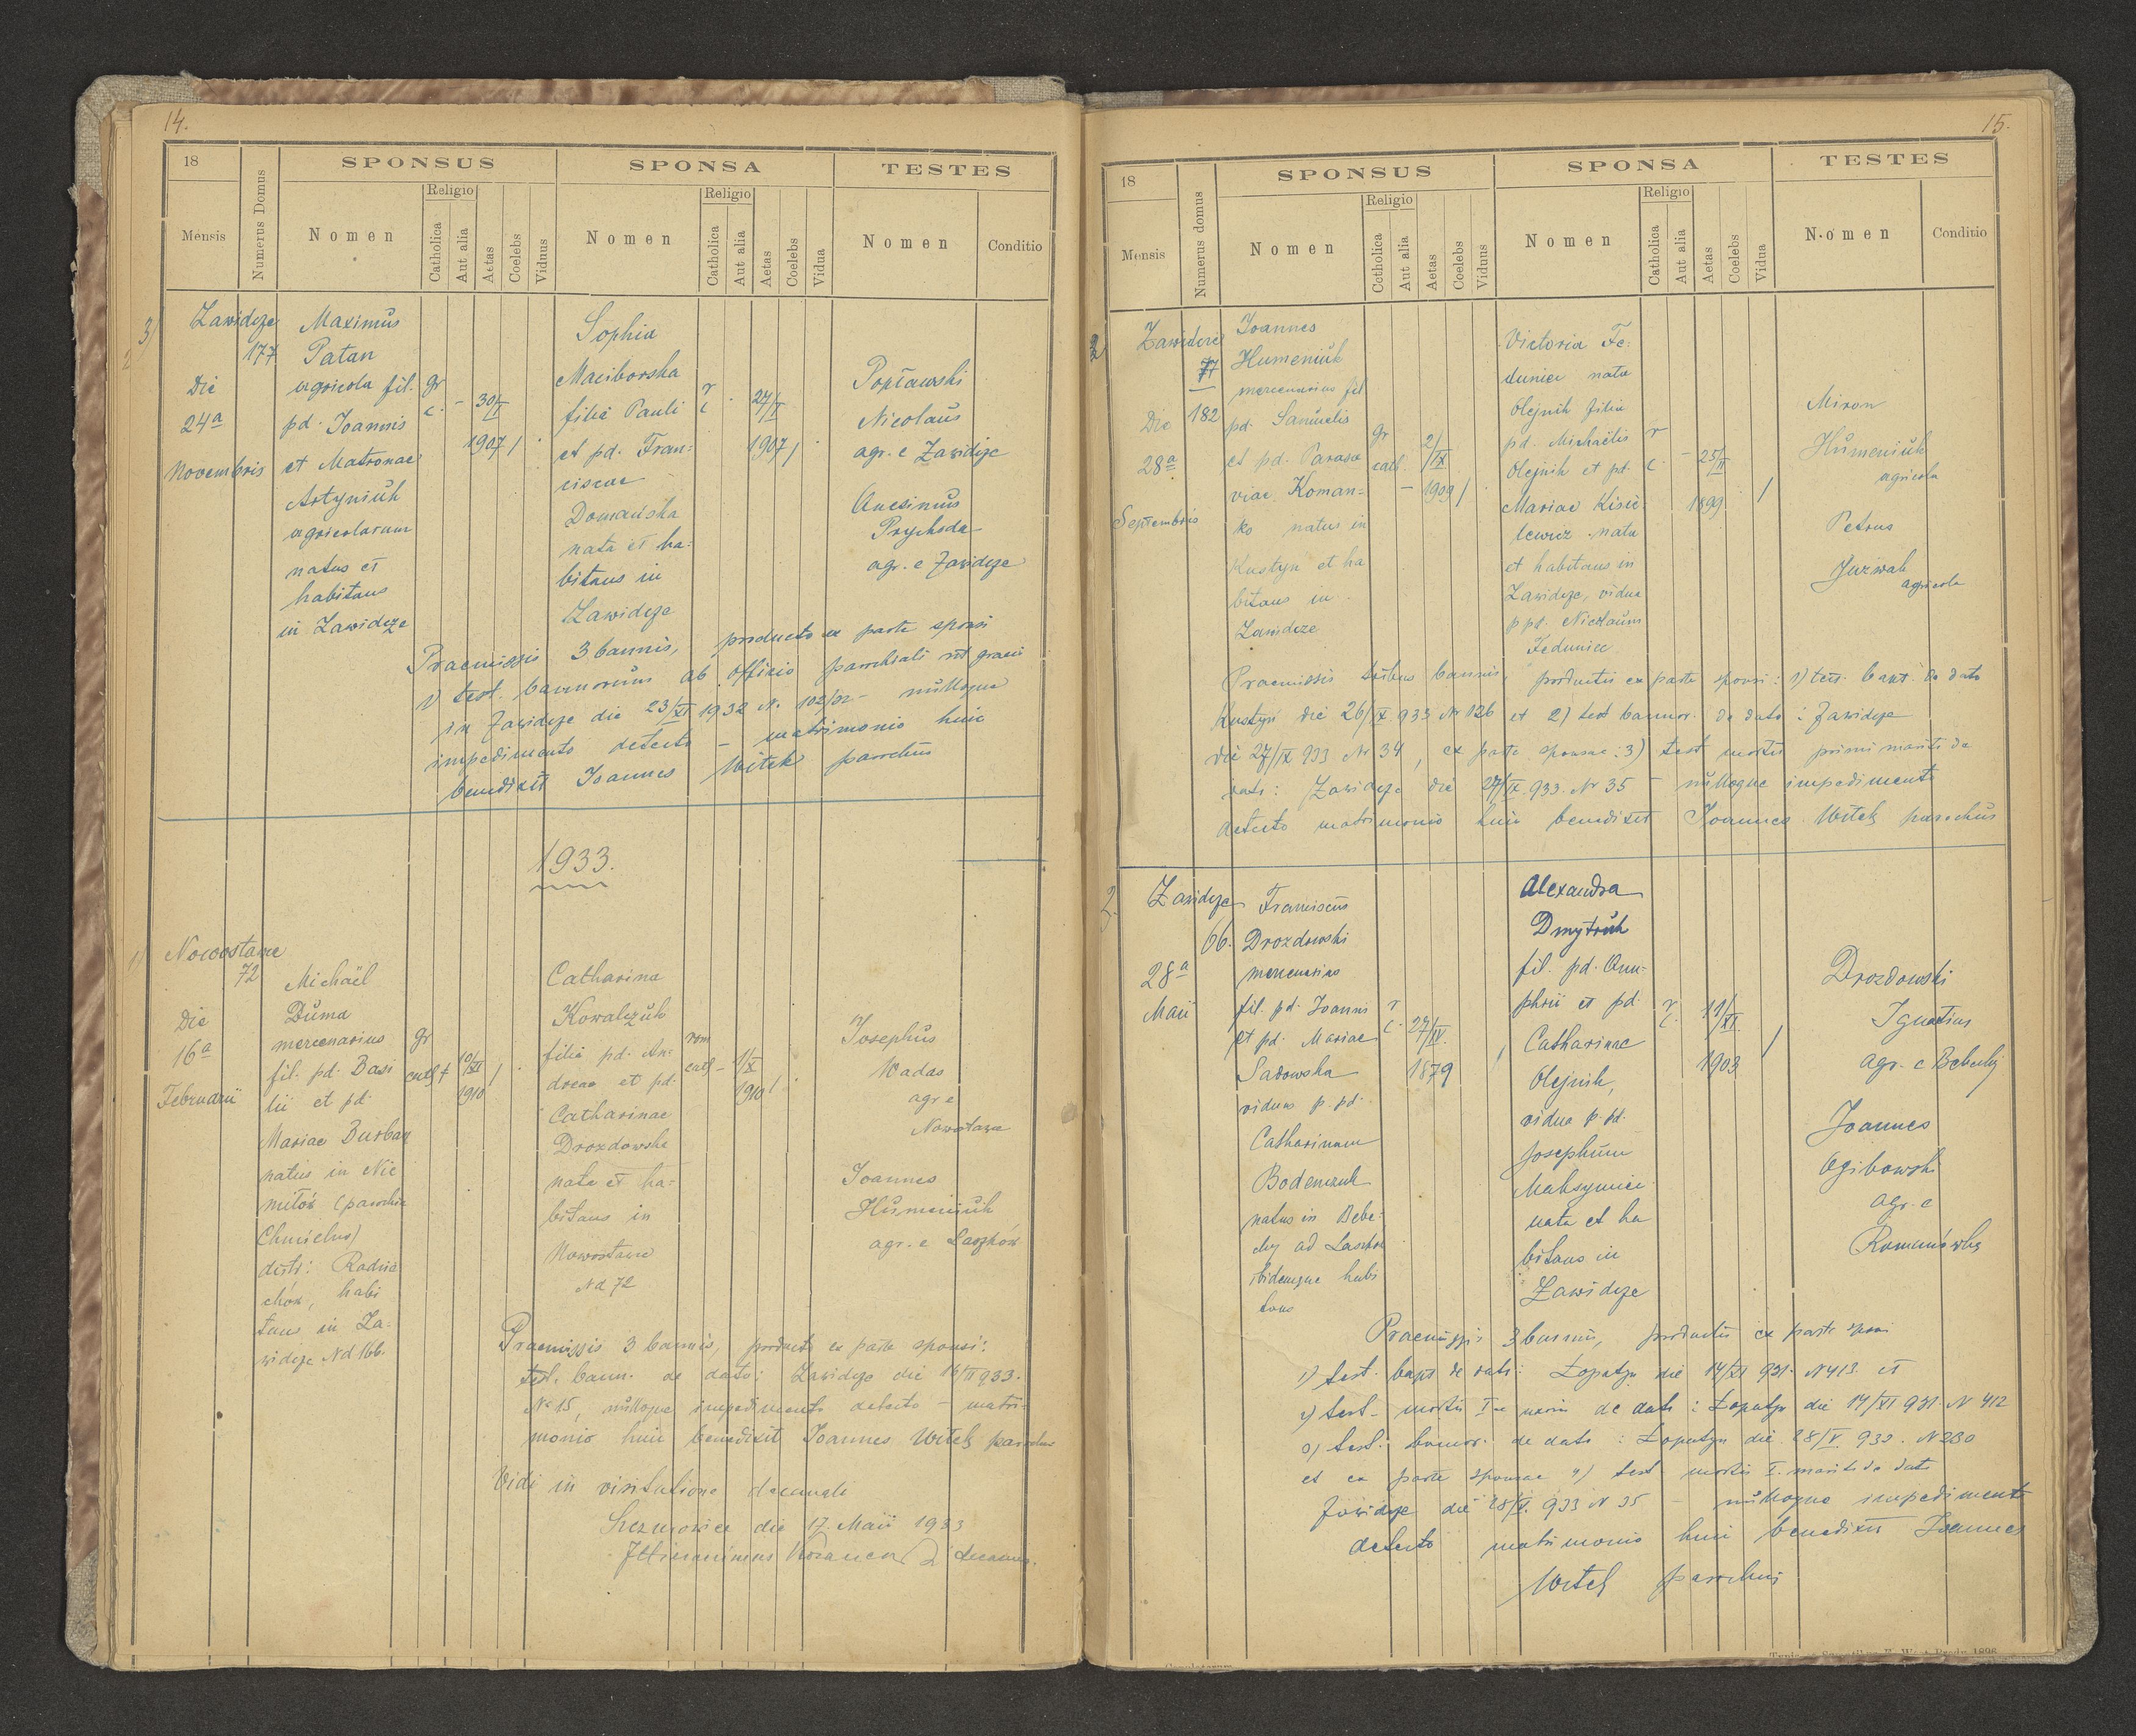 14.
18
Mensis
Numerus Domus
SPONSUS
Nomen
Religio
Catholica
Aut alia
Aetas
Coelebs
Viduus
SPONSA
Nomen
Religio
Catholica
Aut alia
Aetas
Coelebs
Vidua
TESTES
Nomen
Conditio
3)
Zawidcze
177
Die
24a
Novembris
Maximus
Patan
agricola fil.
pd. Joannis
et Matronae
Artyniuk
agricolarum
natus et
habitans
in Zawidcze
gr
c.
-
30/I
1907
Sophia
Maciborska
filia Pauli
et pd. Fran=
ciscae
Domańska
nata et ha=
bitans in
Zawidcze
r
c
27/I
1907
Popławski
Nicolaus
agr. e Zawidcze
Onesimus
Prychoda
agr. e Zawidcze
Praemissis 3 bannis, producto ex parte sponsi
1) test. bannorum ab officio parochiali rit graeci
in Zawidcze die 23/XI 1932 N. 102/32 - nulloque
impedimento detecto - matrimonio huic
benedixit Joannes Witek parochus
1933.
1)
Nowostawce
72
Die
16a
Februarii
Michaël
Duma
mercenarius
fil. pd. Basi
lii et pd.
Mariae Burban
natus in Nie
mitów (parochia
Chmielno)
distr: Radzie
chów, habi
tans in Za-
widcze Nd 166.
gr
cath
10/XII
1910
Catharina
Kowalczuk
filia pd. An=
dreae et pd.
Catharinae
Drozdowska
nata et ha=
bitans in
Nowostawce
Nd 72
rom
cath -
1/X
1910
Josephus
Wadas
agr e
Nowostawce
Joannes
Humeniuk
agr. e Laszków
Praemissis 3 bannis, producto ex parte sponsi:
test. bann. de dato: Zawidcze die 16/II 933.
No 15, nulloque impedimento detecto - matri-
monio huic benedixit Joannes Witek parochus
Vidi in visitatione decanali
die 17. Maii 1933
decanus.
15.
18
Mensis
Numerus domus
SPONSUS
Nomen
Religio
Cctholica
Aut alia
Aetas
Coelebs
Viduus
SPONSA
Nomen
Religio
Catholica
Aut alia
Aetas
Coelebs
Vidua
TESTES
Nomen
Conditio
Zawidcze
77
Die 182
28a
Septembris
Joannes
Humeniuk
mercenarius fil
pd. Samuelis
et pd. Parasce
viae Koman=
ko natus in
Kustyn et ha
bitans in
Zawidcze
gr
cath.
-
2/IX
1909
Victoria Fe=
duniec nata
Olejnik filia
pd. Michaëlis
Olejnik et pd.
Mariae Kisie=
lewicz nata
et habitans in
Zawidcze, vidua
p pd. Nicolaum
Feduniec
r
c.
-
25/II
1899
Miron
Humeniuk
agricola
Petrus
Juzwak
agricola
Praemissis tribus bannis, productis ex parte sponsi: 1) test. bapt. de dato
Kustyn die 26/IX 933 Nr 126 et 2) test bannor. de dato: Zawidcze
die 27/IX 933 Nr 34, ex parte sponsae: 3) test mortis primi mariti de
dato: Zawidcze die 27/IX 933. Nr 35 - nulloque impedimento
detecto matrimonio huic benedixit Joannes Witek parochus
2.
Zawidcze
66.
28a
Maii
Franciscus
Drozdowski
mercenarius
fil. pd. Joannis
et pd. Mariae
Sadowska
viduus p. pd.
Catharinam
natus in Bebe-
chy ad Laszków
ibidemque habi
tans
r
c.
27/IV.
1879
Alexandra
Dmytruk
fil. pd. Onu=
phrii et pd.
Catharinae
Olejnik,
vidua p. pd.
Josephum
Maksymiec
nata et ha
bitans in
Zawidcze
r
c.
11/XI.
1903
Drozdowski
Ignatius
agr. e Bebechy
Joannes
Ogibowski
agr. e
Romanówka
Praemissis 3 bannis, productis ex parte sponsi
1) test. bapt de dato: Łopatyn die 14/XI 931. N 413. et
2) test. mortis Iae uxoris de dato: Łopatyn die 14/XI 931 N 412
3) test. bannor. de dato: Łopatyn die 28/V. 933. N 230
et ex parte sponsae 4) test mortis I. mariti de dato
Zawidcze die 28/V. 933 N 35 - nulloque impedimento
detecto matrimonio huic benedixit Joannes
Witek parochus